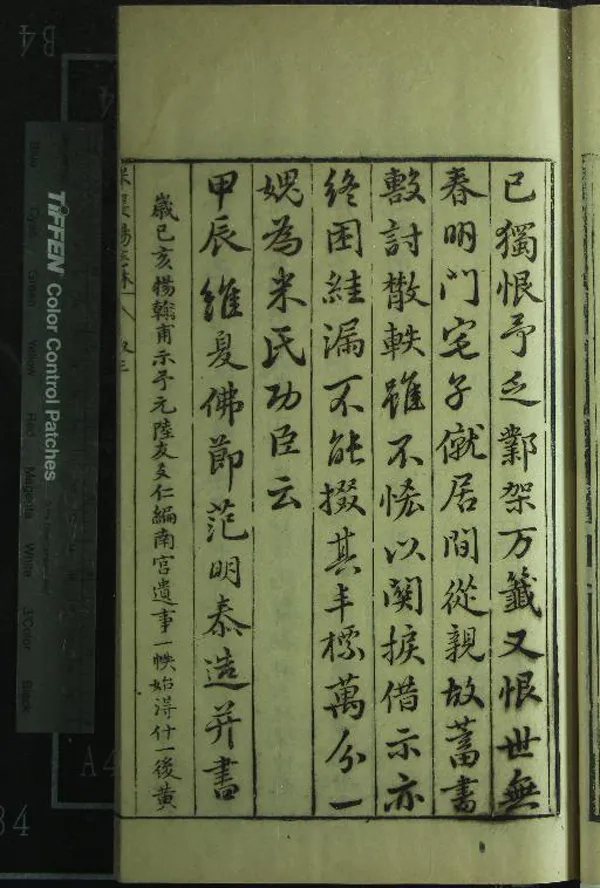 已獨恨予乏鄴架万籤又恨世無
春明门宅子僦居間從親故蓄書
數討散軼雖不悋以関捩借示亦
終困絓漏不能掇其丰標萬分一
媿為米氏功臣云
甲辰維夏佛節范明泰造并書
歲己亥楊翰甫示予元陸友友仁編南宮遺事一帙始得什一後黄
TIFFEN Color Control Patches
Blue Cyan Green Yellow Red Magenta White 3/Color Black
B4
A4